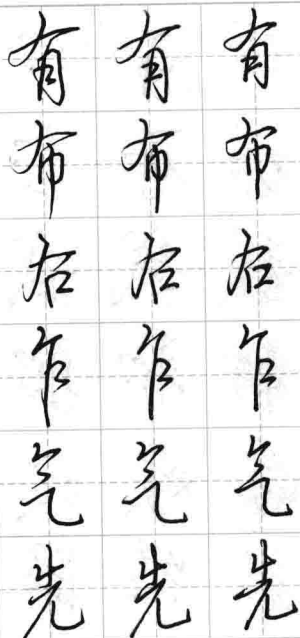 有有有
布布布
右右右
乍乍乍
气气气
先先先